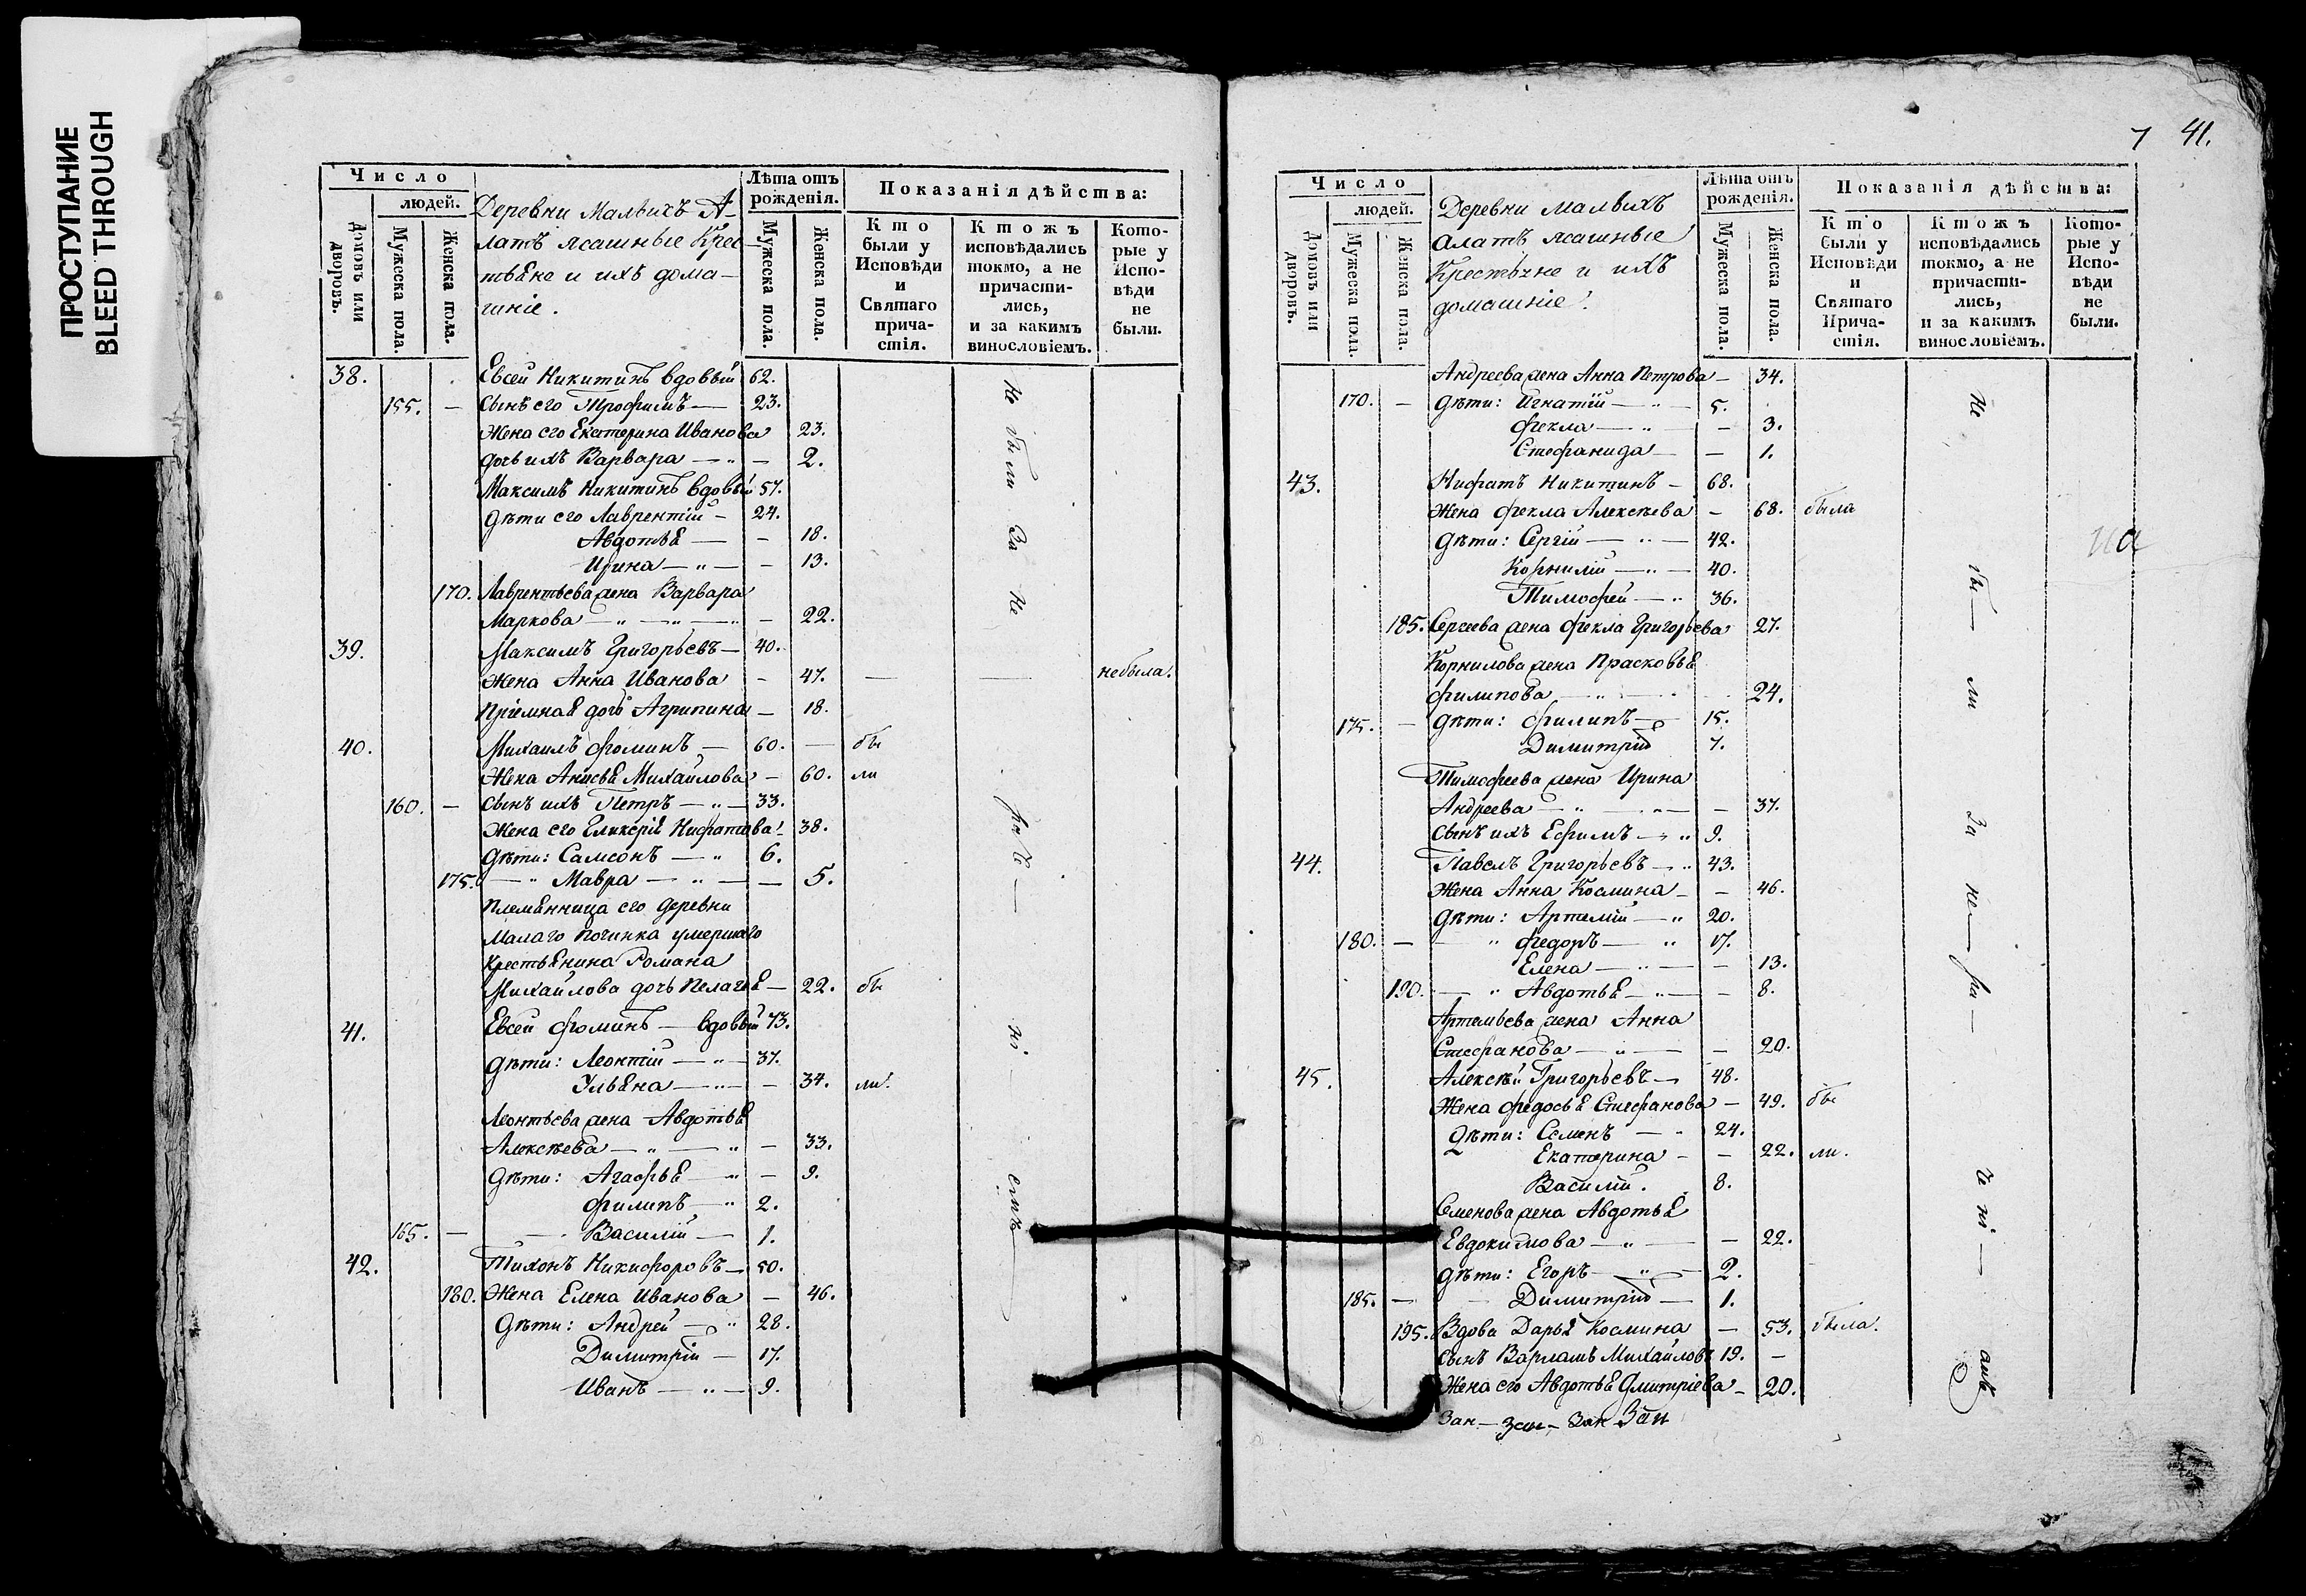 ПРОСТУПАНИЕ
BLEED THROUGH
Число
людей.
Домовъ или дворовъ.
Мужеска пола.
Женска пола.
Деревни Малыхъ А-
латъ ясашные Крес-
тьяне и ихъ дома-
шніе.
Лѣта отъ рожденія.
Мужеска пола.
Женска пола.
Показанія дѣйства:
Кто были у Исповѣди и Святаго причастія.
Ктожъ исповѣдались токмо, а не причастились, и за какимъ винословіемъ.
Которые у Исповѣди не были.
38. Евсей Никитинъ вдовый 62.
155. — Сынъ его Трофимъ — 23.
Жена его Екатерина Иванова 23.
дочь ихъ Варвара — " — 2.
Максимъ Никитинъ вдовый 57.
дѣти его Лаврентій — 24.
Авдотья — — 18.
Ирина — " — — 13.
170. Лаврентьева жена Варвара
Маркова — " — " — " — 22.
39. Максимъ Григорьевъ — 40.
Жена Анна Иванова — 47. — — небыла.
Пріемная дочь Агрипина — 18.
40. Михаилъ Фоминъ — 60. — бы
Жена Анисья Михайлова — 60. ли
160. — Сынъ ихъ Петръ — " — 33.
Жена его Гликерія Нифатова — 38.
дѣти: Самсонъ — " 6.
175. — " Мавра — " — — 5.
Племянница его деревни
Малаго Починка умершаго
крестьянина Романа
Михайлова дочь Пелагья — 22. бы
41. Евсей Фоминъ — вдовый 73.
дѣти: Леонтій — " — 37.
Ульяна — " — — 34. ли.
Леонтьева жена Авдотья
Алексѣева — " — " — 33.
дѣти: Агафья — " — 9.
Филипъ — " 2.
165. — — Василій — 1.
42. Тихонъ Никифоровъ — 50.
180. Жена Елена Иванова — 46.
дѣти: Андрей — " 28.
Димитрій — 17.
Иванъ — " — 9.
Не были за не
раче —
ні —
емъ
7 41.
Число
людей.
Домовъ или дворовъ.
Мужеска пола.
Женска пола.
Деревни малыхъ
алатъ ясашные
Крестьяне и ихъ
домашніе.
Лѣта отъ рожденія.
Мужеска пола.
Женска пола.
Показанія дѣйства:
Кто были у Исповѣди и Святаго Причастія.
Ктожъ исповѣдались токмо, а не причастились, и за какимъ винословіемъ.
Которые у Исповѣди не были.
Андреева жена Анна Петрова — 34.
170. — дѣти: Игнатій — " — 5.
Фекла — " — 3.
Стефанида — — 1.
43. Нифатъ Никитинъ — 68.
Жена Фекла Алексѣева — 68. была
дѣти: Сергій — " — 42.
Корнилій — " — 40.
Тимофей — " 36.
185. Сергеева жена Фекла Григорьева 27.
Корнилова жена Прасковья
Филипова — " — 24.
175. — дѣти: Филипъ — 15.
Димитрій 7.
Тимофеева жена Ирина
Андреева — " — " — — 37.
Сынъ ихъ Ефимъ — " 9.
44. Павелъ Григорьевъ — " 43.
Жена Анна Космина — — 46.
дѣти: Артемій — " 20.
180. — — " Федоръ — " 17.
Елена — " — — 13.
190. — " Авдотья — " — — 8.
Артемьева жена Анна
Стефанова — " — — 20.
45. Алексѣй Григорьевъ — 48.
Жена Федосья Стефанова — 49. бы
дѣти: Семенъ — " 24.
Екатерина — — 22. ли.
Василій. 8.
Семенова жена Авдотья
Евдокимова — " — — 22.
дѣти: Егоръ — " — 2.
185. — — Димитрій — 1.
195. Вдова Дарья Космина — 53. была.
Сынъ Варламъ Михайловъ 19. —
Жена его Авдотья Дмитріева — 20.
Зан — зан — Зан Зан
Не
бы —
ли
за
не —
ра —
че ні —
емъ